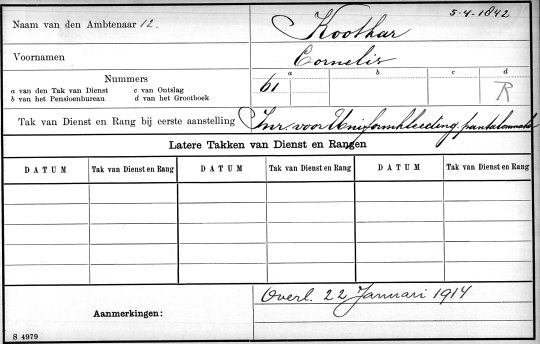 5-4-1842
Naam van den Ambtenaar 12. Koothar
Voornamen Cornelis
Nummers
a van den Tak van Dienst c van Ontslag
b van het Pensioenbureau d van het Grootboek
a b c d
61 R
Tak van Dienst en Rang bij eerste aanstelling Inr. voor Uniformkleeding pantalonmaker
Latere Takken van Dienst en Rangen
DATUM Tak van Dienst en Rang DATUM Tak van Dienst en Rang DATUM Tak van Dienst en Rang
Overl. 22 Januari 1914
Aanmerkingen:
S 4979